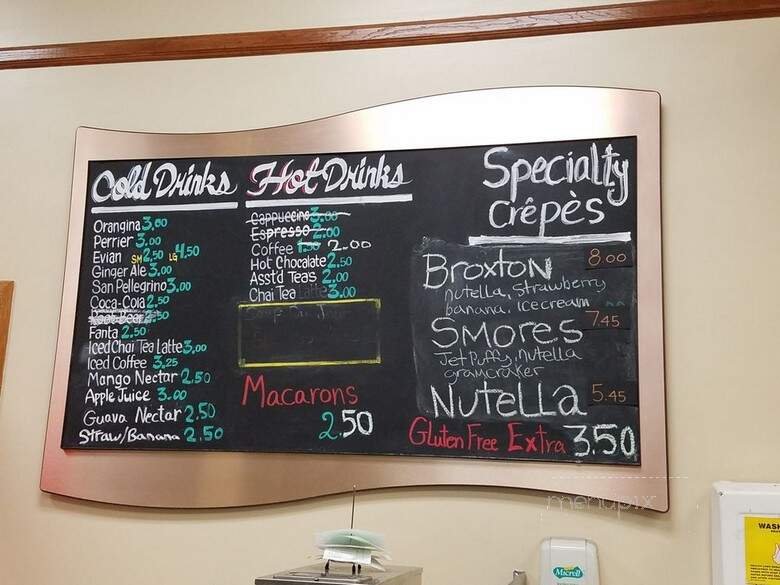 Cold Drinks
Orangina 3.00
Perrier 3.00
Evian SM 2.50 LG 4.50
Ginger Ale 3.00
San Pellegrino 3.00
Coca-Cola 2.50
Root Beer 2.50
Fanta 2.50
Iced Chai Tea Latte 3.00
Iced Coffee 3.25
Mango Nectar 2.50
Apple Juice 3.00
Guava Nectar 2.50
Straw/Banana 2.50
Hot Drinks
Cappuccino 3.00
Espresso 2.00
Coffee 1.50 2.00
Hot Chocolate 2.50
Asstd Teas 2.00
Chai Tea Latte 3.00
Macarons
2.50
Specialty
Crêpès
Broxton 8.00
nutella, strawberry
banana, icecream
Smores 7.45
Jet Puff, nutella
gramcraker
Nutella 5.45
Gluten Free Extra 3.50
menupix
Micrell
WASH